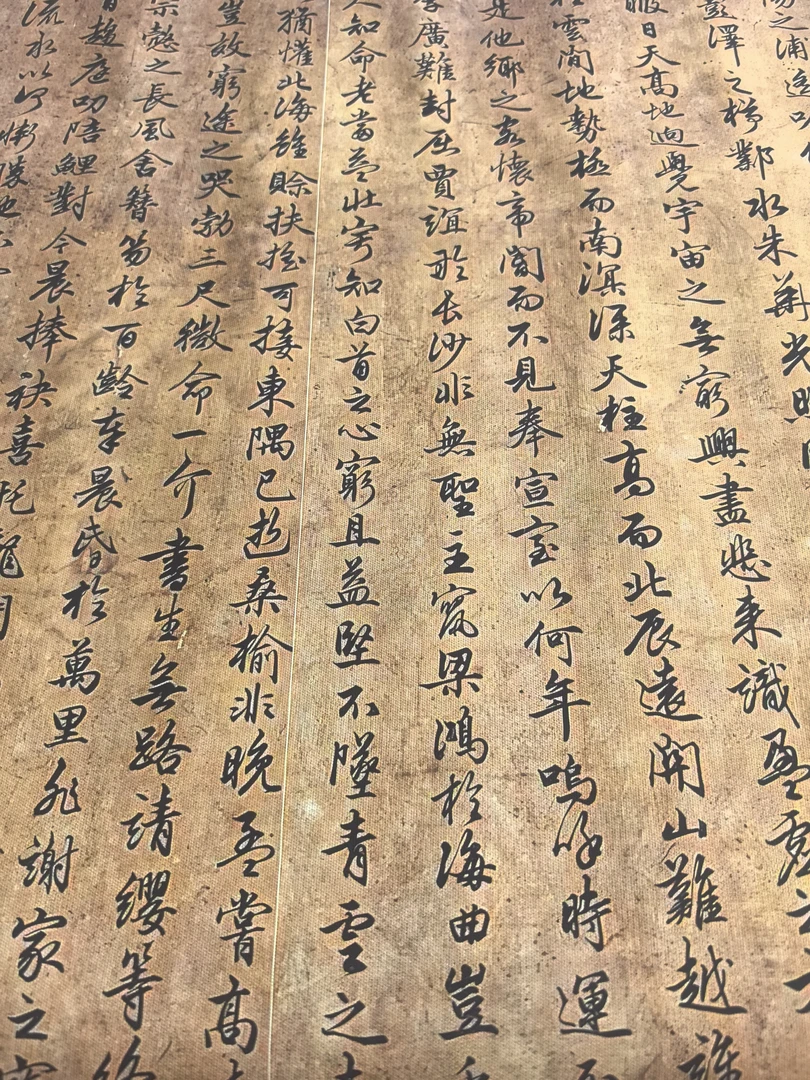 陽之浦遙吟
彭澤之樽鄴水朱華光照
暇日天高地迥覺宇宙之無窮興盡悲來識盈虛之
雲間地勢極而南溟深天柱高而北辰遠關山難越誰
是他鄉之客懷帝閽而不見奉宣室以何年嗚呼時運不
李廣難封屈賈誼於長沙非無聖主竄梁鴻於海曲豈
人知命老當益壯寧知白首之心窮且益堅不墜青雲之
猶懽北海雖賒扶搖可接東隅已逝桑榆非晚孟嘗高
豈效窮途之哭勃三尺微命一介書生無路請纓等終
宗愨之長風舍簪笏於百齡奉晨昏於萬里非謝家之寶
日趨庭叨陪鯉對今晨捧袂喜托龍門
流水以何慚勝地不